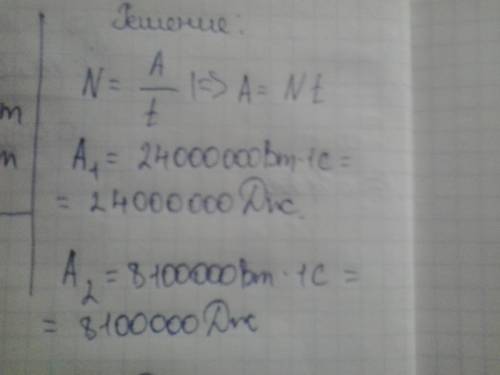 Решение:
N = A / t |=> A = Nt
m
A₁ = 24000000 Вт · 1с =
п
= 24000000 Дж.
A₂ = 8100000 Вт · 1с =
= 8100000 Дж